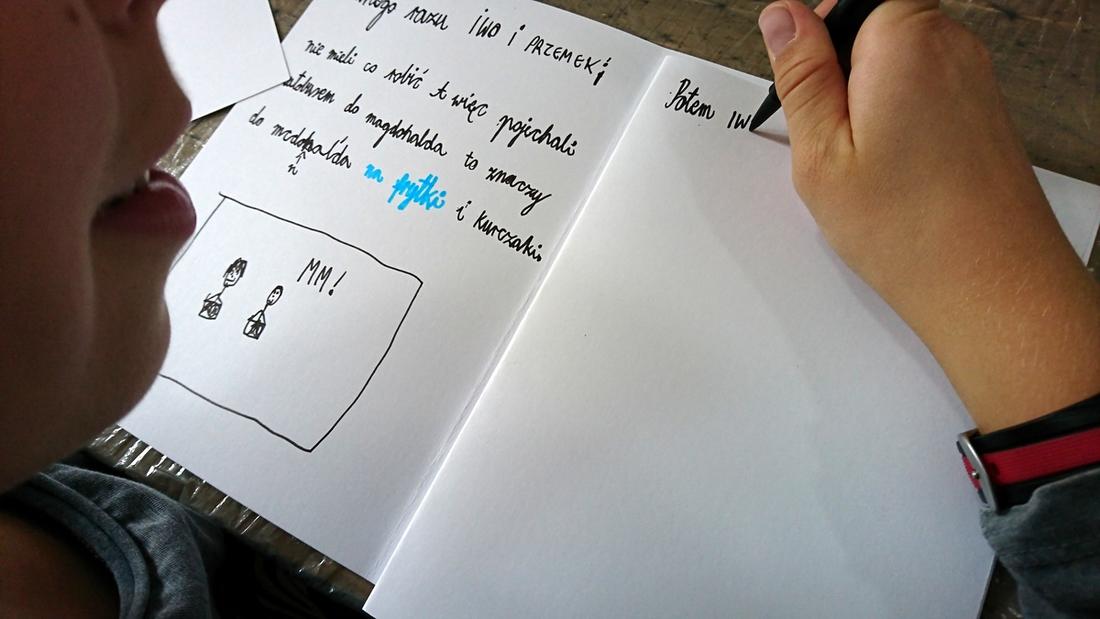 razu IWO i PRZEMEK
nie mieli co robić a więc pojechali
autobusem do magdohalda to znaczy
do mcdohalda na frytki i kurczaki.
n
MM!
Potem IW